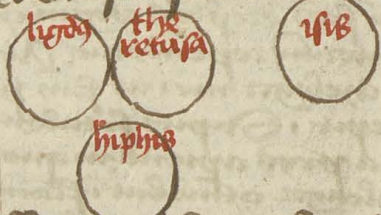 ligdꝰ
the
retusa
isis
hiphis